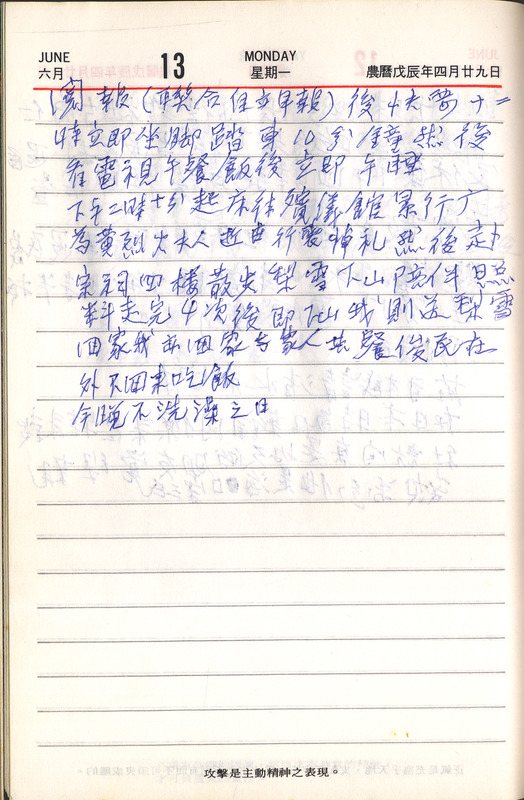 JUNE
六月
13
MONDAY
星期一
農曆戊辰年四月廿九日
報(聯合自立早報)後 十二
時立即坐脚踏車10分鐘然後
看電視午餐飯後立即午睡
下午二時十分起床往殯儀館景行廳
為黃烈火夫人 行 札然後
宗祠四樓散步梨雪下山陪伴
走完4次後即下山我則送梨雪
回家我亦回家与家人共餐俊民在
外不回來吃飯
今晚不洗澡之日
攻擊是主動精神之表現。